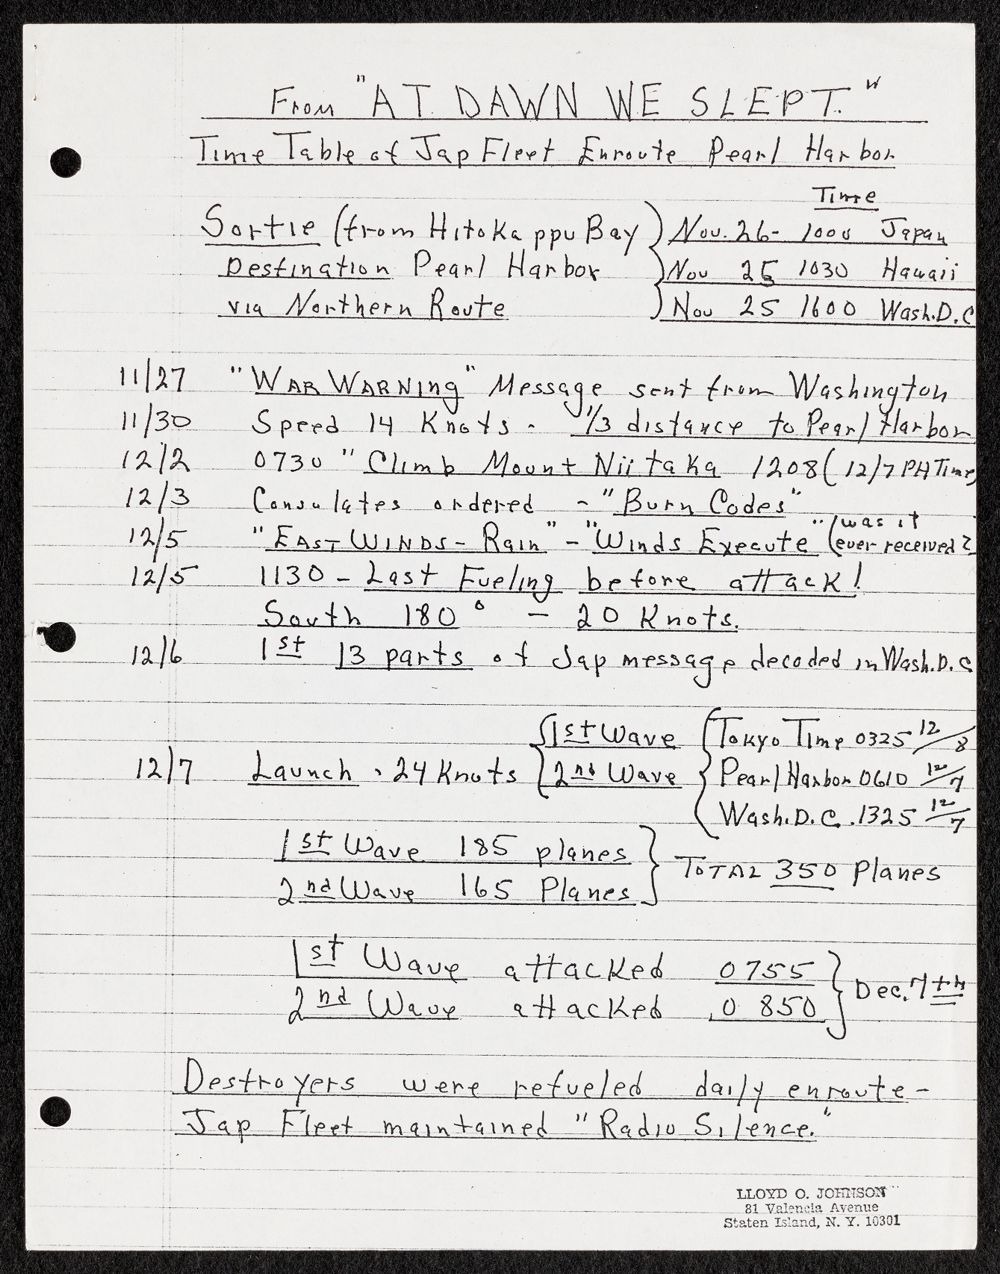 From "AT DAWN WE SLEPT."
Time Table of Jap Fleet Enroute Pearl Harbor
Time
Sortie (from Hitokappu Bay) Nov. 26- 1000 Japan
Destination Pearl Harbor ) Nov 25 1030 Hawaii
via Northern Route ) Nov 25 1600 Wash.D.C
11/27 "WAR WARNING" Message sent from Washington
11/30 Speed 14 Knots - 1/3 distance to Pearl Harbor
12/2 0730 "Climb Mount Niitaka 1208 (12/7 PH Time)
12/3 Consulates ordered - "Burn Codes"
12/5 "EAST WINDS - Rain" - "Winds Execute" (was it ever received?
12/5 1130 - Last Fueling before attack!
South 180° - 20 Knots.
12/6 1st 13 parts of Jap message decoded in Wash.D.C
1st Wave { Tokyo Time 0325 12/8
12/7 Launch . 24 Knots { 2nd Wave { Pearl Harbor 0610 12/7
Wash.D.C. 1325 12/7
1st Wave 185 planes
2nd Wave 165 Planes } TOTAL 350 Planes
1st Wave attacked 0755
2nd Wave attacked 0850 } Dec. 7th
Destroyers were refueled daily enroute -
Jap Fleet maintained "Radio Silence."
LLOYD O. JOHNSON
81 Valencia Avenue
Staten Island, N. Y. 10301